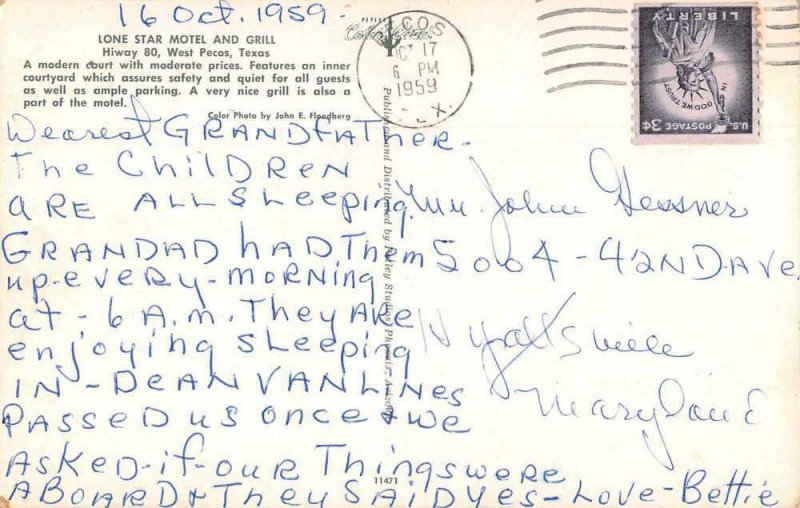 16 Oct. 1959.
LONE STAR MOTEL AND GRILL
Hiway 80, West Pecos, Texas
A modern court with moderate prices. Features an inner
courtyard which assures safety and quiet for all guests
as well as ample parking. A very nice grill is also a
part of the motel.
Color Photo by John E. Floodberg
PECOS
OCT 17
6 PM
1959
TEX.
LIBERTY
IN GOD WE TRUST
U.S. POSTAGE 3¢
Dearest GRANDFATHER-
The Children
ARE ALL Sleeping.
GRANDAD HAD Them
up-every-morning
at-6 A.m. They ARE
enjoying Sleeping
IN-DEAN VAN LINES
PASSED us once + we
ASKED-if-our Things were
ABOARD + They SAID yes-Love-Bettie
Mr. John Gessner
5004-42ND Ave.
Hyattsville
Maryland
Published and Distributed by Petley Studios, Phoenix,
11471